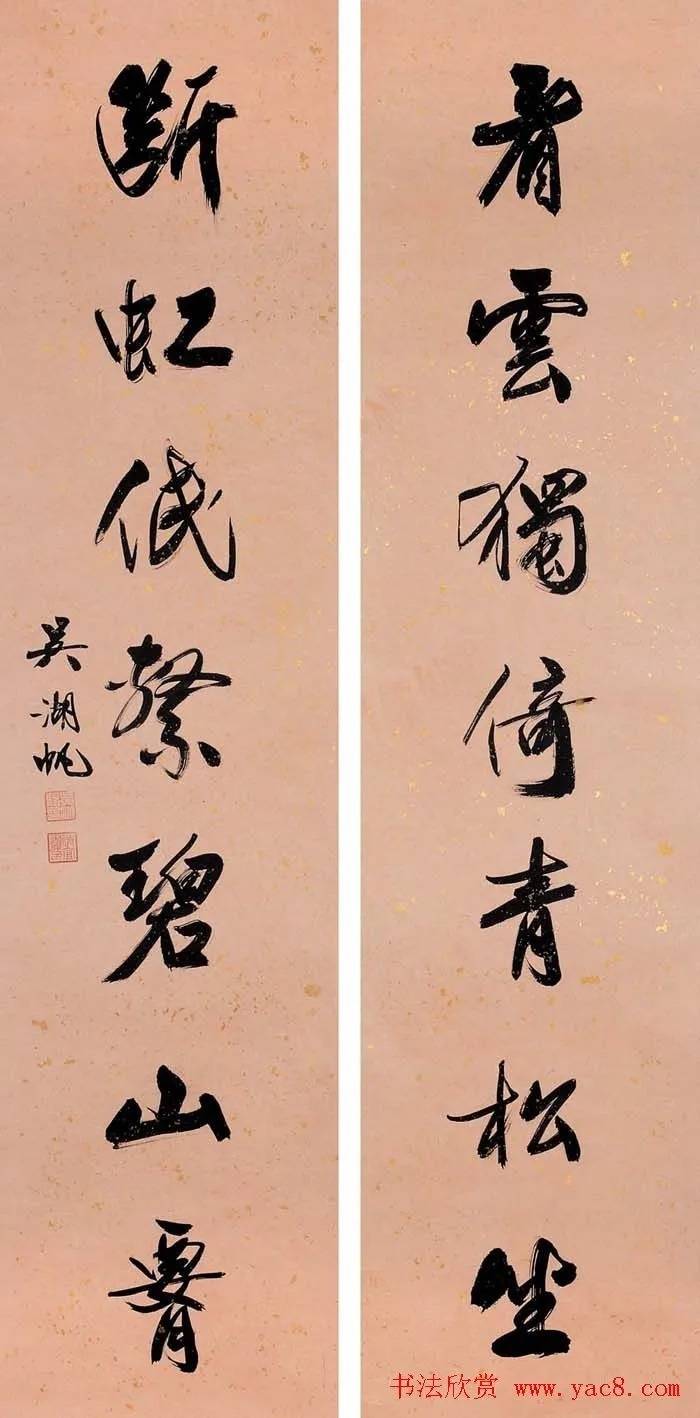 看雲獨倚青松坐
斷虹低繫碧山腰
吳湖帆
书法欣赏 www.yac8.com